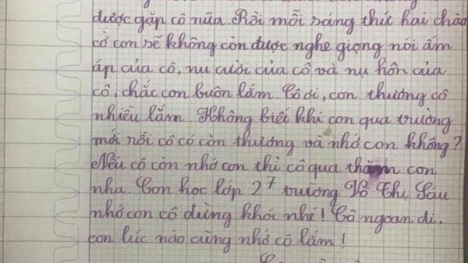 được gặp cô nữa. Rồi mỗi sáng thứ hai chào
cờ con sẽ không còn được nghe giọng nói ấm
áp của cô, nụ cười của cô và nụ hôn của
cô, chắc con buồn lắm. Cô ơi, con thương cô
nhiều lắm. Không biết khi con qua trường
mới rồi cô có còn thương và nhớ con không?
Nếu cô còn nhớ con thì cô qua thăm con
nha. Con học lớp 2⁷ trường Võ Thị Sáu
nhớ con cô đừng khóc nhé! Cô ngoan đi.
con lúc nào cũng nhớ cô lắm!